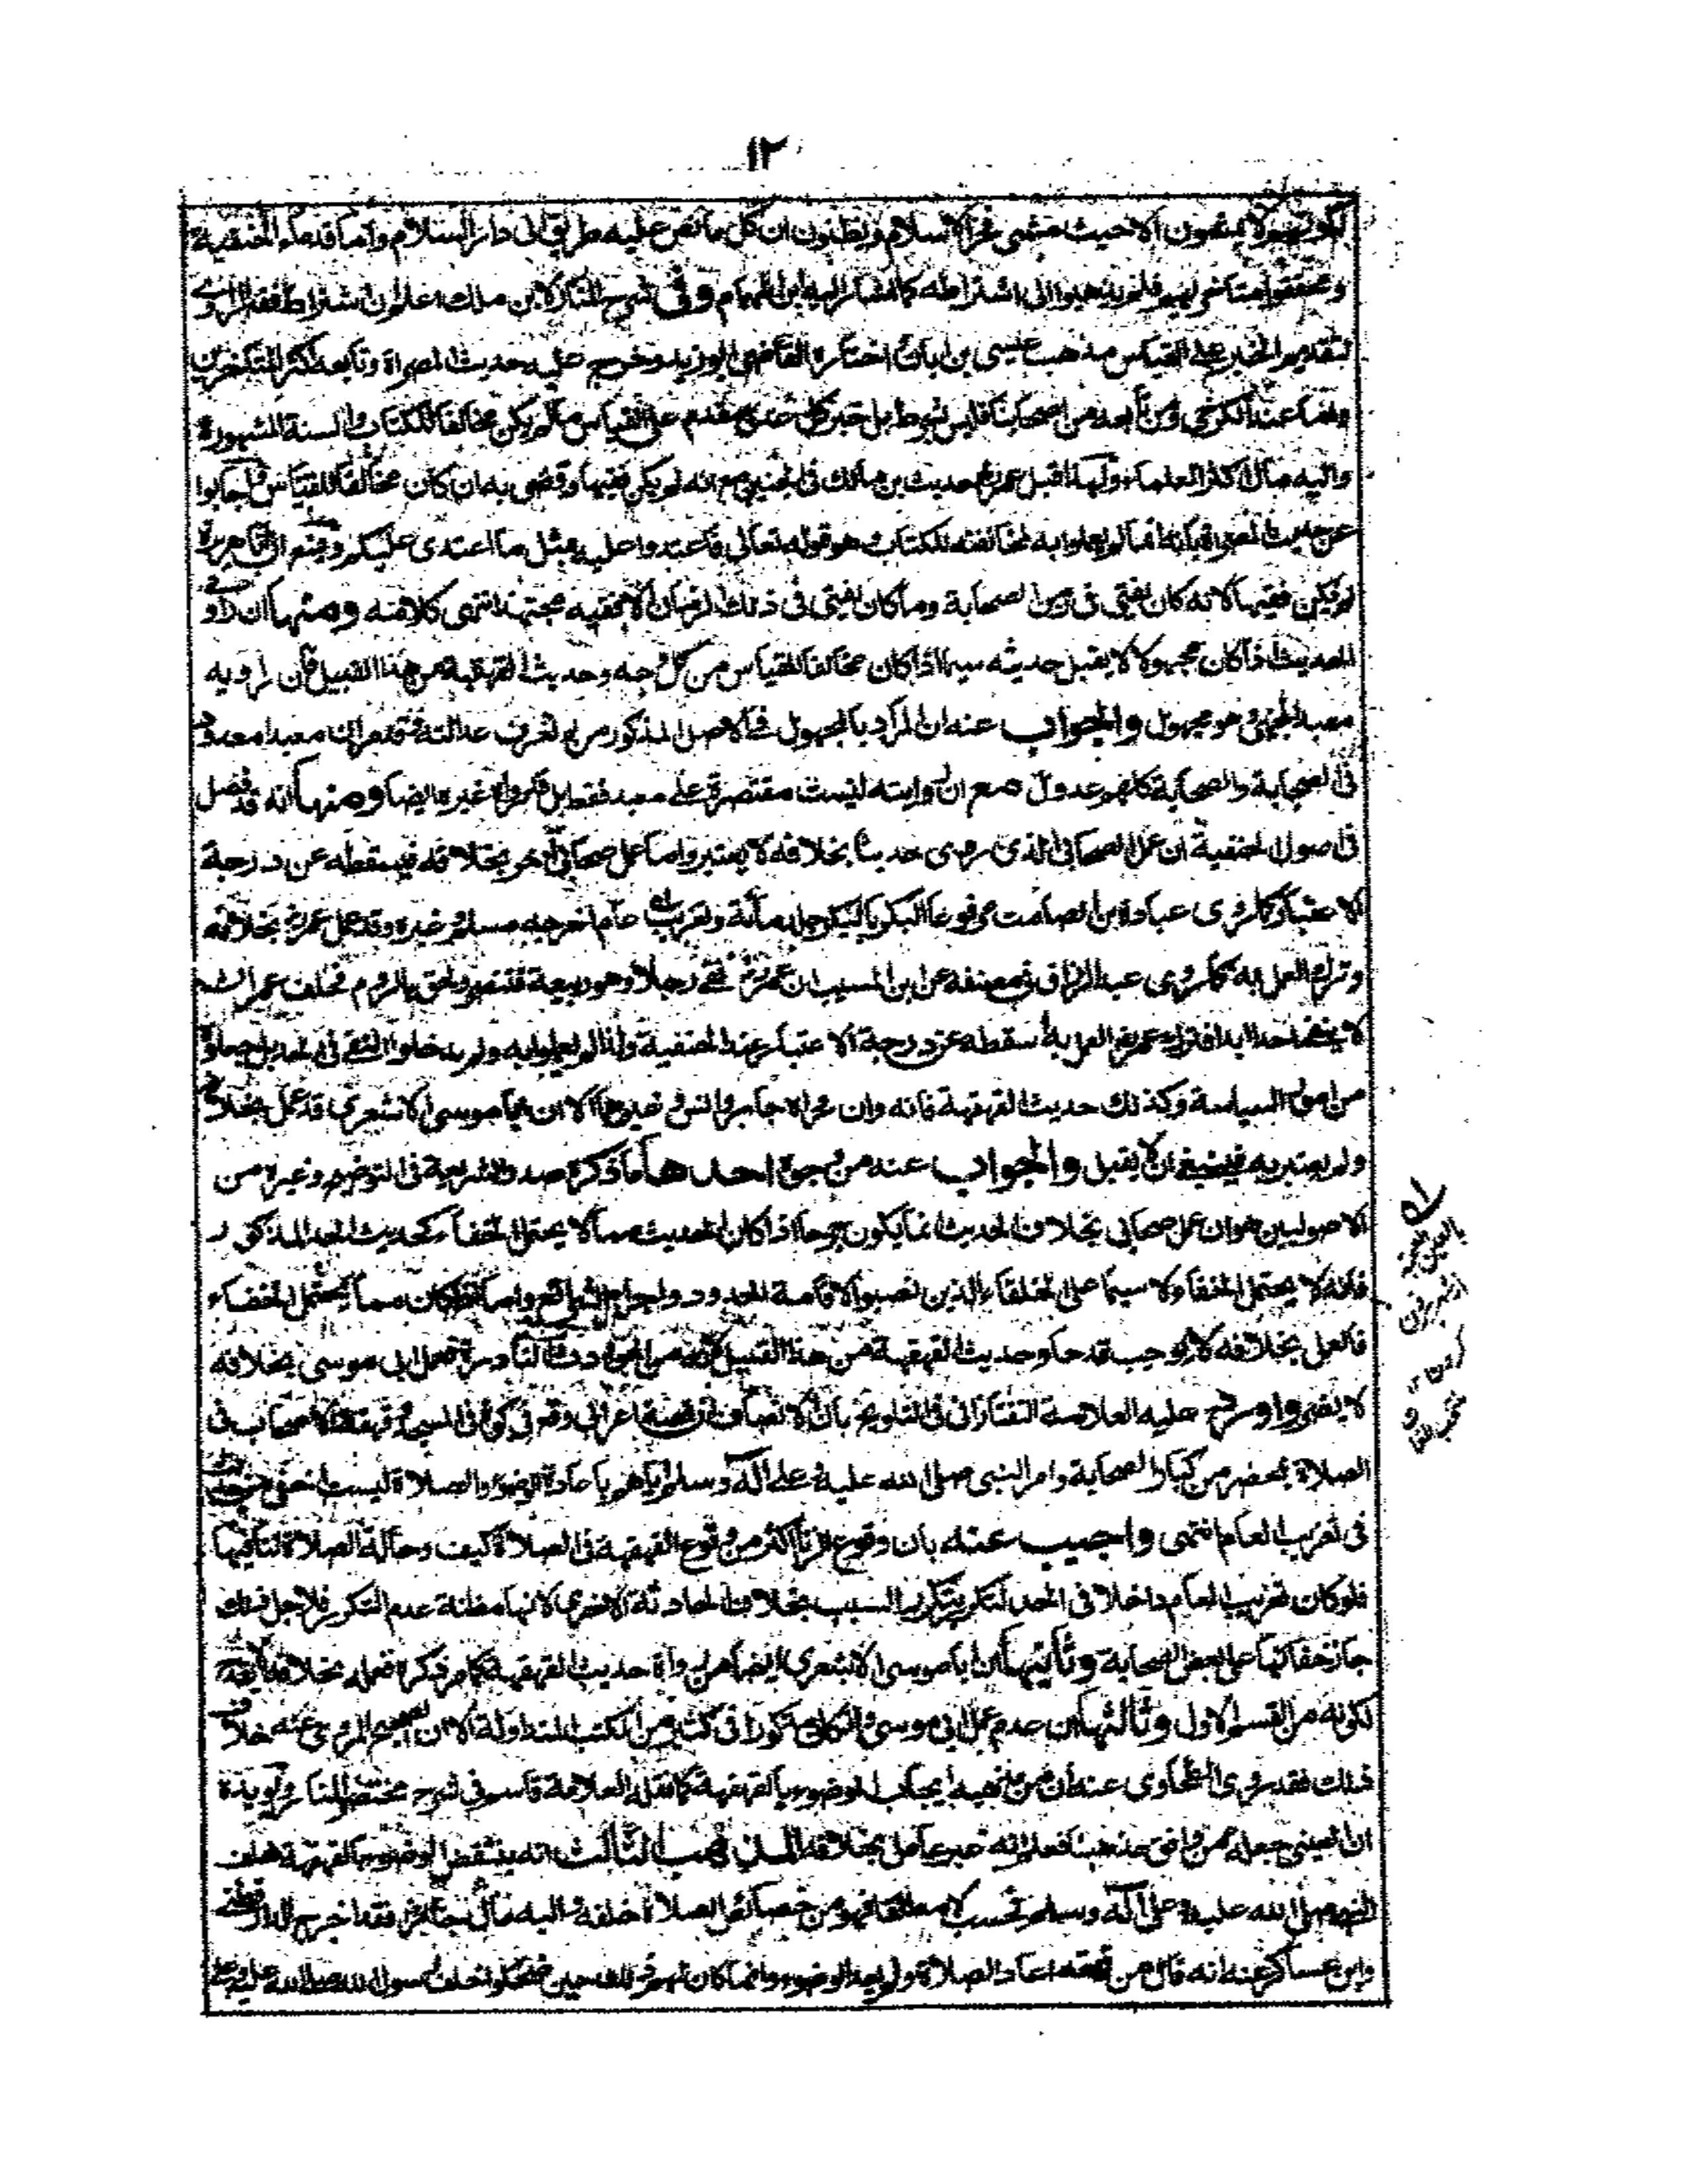 ١٢
لكونهم لا يمشون الا حيث مشى فخر الاسلام ويظنون ان كل ما نص عليه طريق الى دار السلام واما قدماء الحنفية
ومحققوا متاخريهم فلم يذهبوا الى اشتراطه كما اشار اليه ابن الهمام وفى شرح المنار لابن ملك اعلم ان اشتراط فقه الراوى
لتقديم الخبر على القياس مذهب عيسى بن ابان اختاره القاضى ابو زيد وخرج عليه حديث المصراة وتابعه اكثر المتاخرين
واما عند الكرخى ومن تابعه من اصحابنا فليس بشرط بل خبر كل عدل مقدم على القياس ما لم يكن مخالفا للكتاب والسنة المشهورة
واليه مال اكثر العلماء ولهذا قبل عمر حديث بن مالك فى الجنين مع انه لم يكن فقيها وقضى به وان كان مخالفا للقياس واجابوا
عن حديث المصراة بانه انما لم يعملوا به لمخالفته للكتاب هو قوله تعالى فاعتدوا عليه بمثل ما اعتدى عليكم ومنع ان ابا هريرة
لم يكن فقيها لانه كان يفتى فى زمن الصحابة وما كان يفتى فى ذلك الزمان الا فقيه مجتهد انتهى كلامه ومنها ان راوى
الحديث اذا كان مجهولا لا يقبل حديثه سيما اذا كان مخالفا للقياس من كل وجه وحديث القهقهة من هذا القبيل فان راويه
معبد الجهنى هو مجهول والجواب عنه ان المراد بالمجهول فى الاصل المذكور من لم تعرف عدالته فقد مر ان معبدا معدود
فى الصحابة والصحابة كلهم عدول مع ان روايته ليست مقتصرة على معبد فقط بل قد رواه غيره ايضا ومنها انه قد فصل
فى اصول الحنفية ان عمل الصحابى الذى روى حديثا بخلافه لا يعتبر واما عمل صحابى اخر بخلافه فيسقطه عن درجة
الاعتبار كما روى عبادة بن الصامت مرفوعا البكر بالبكر جلد مائة وتغريب عام اخرجه مسلم وغيره وقد عمل عمر بخلافه
وترك العمل به كما روى عبد الرزاق فى مصنفه عن ابن المسيب ان عمر نفى رجلا وهو ربيعة فتنصر ولحق بالروم فحلف عمر ان
لا ينفى احدا ابدا فترك عمر العمل به اسقطه عن درجة الاعتبار عند الحنفية ولذا لم يعملوا به ولم يدخلوا النفى فى الحد بل جعلوه
من امور السياسة وكذلك حديث القهقهة فانه وان رواه جابر وانس وغيرهما الا ان ابا موسى الاشعرى قد عمل بخلافه
ولم يعتبر به فينبغى ان لا يقبل والجواب عنه من وجوه احدها ما ذكره صدر الشريعة فى التوضيح وغيره من
الاصوليين هو ان عمل صحابى بخلاف الحديث انما يكون جرحا اذا كان الحديث مما لا يحتمل الخفاء كحديث الحد المذكور
فانه لا يحتمل الخفاء ولا سيما على الخلفاء الذين نصبوا لاقامة الحدود واجراء الشرائع واما اذا كان مما يحتمل الخفاء
فالعمل بخلافه لا يوجب قدحا وحديث القهقهة من هذا القبيل لانه من الحوادث النادرة فعمل ابى موسى بخلافه
لا يضر واورد عليه العلامة التفتازانى فى التلويح بان الانصاف ان قصة اعرابى وقع فى كوة فى المسجد وقهقهة الاصحاب فى
الصلاة بمحضر من كبار الصحابة وامر النبى صلى الله عليه وعلى آله وسلم اياهم باعادة الوضوء والصلاة ليست اخفى من حديث
فى تغريب العام انتهى واجيب عنه بان وقوع الزنا اكثر من وقوع القهقهة فى الصلاة كيف وحالة الصلاة تنافيها
فلو كان تغريب العام داخلا فى الحد لتكرر بتكرر السبب بخلاف الحادثة الاخرى لانها مظنة عدم التكرر فلاجل ذلك
جاز خفائها على بعض الصحابة وثانيها ان ابا موسى الاشعرى ايضا من رواة حديث القهقهة كما مر ذكره فعمله بخلافه
لكونه من القسم الاول وثالثها ان عدم عمل ابى موسى وان كان مذكورا فى كثير من الكتب المتداولة الا ان الصحيح المروى عنه خلاف
ذلك فقد روى الطحاوى عنه ان من مذهبه ايجاب الوضوء بالقهقهة كما نقله العلامة قاسم فى شرح مختصر المنار ويؤيده
ان العينى جعله ممن وافق مذهبنا فعلم انه غير عامل بخلافه المذهب الثالث انه ينتقض الوضوء بالقهقهة خلف
النبى صلى الله عليه وعلى آله وسلم فحسب لا مطلقا فهو من خصائص الصلاة خلفه واليه مال جابر فقد اخرج الدارقطنى
وابن عساكر عنه انه قال من قهقه اعاد الصلاة ولم يعد الوضوء وانما كان لهم ذلك حين ضحكوا خلف رسول الله صلى الله عليه وسلم